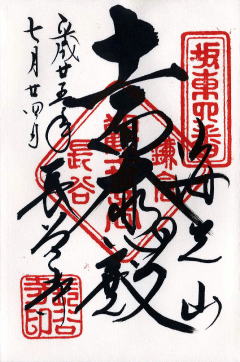 坂東四番
海光山
鎌倉
十一面大悲殿
長谷
平成廿五年
七月廿四日
長谷寺
長谷寺印